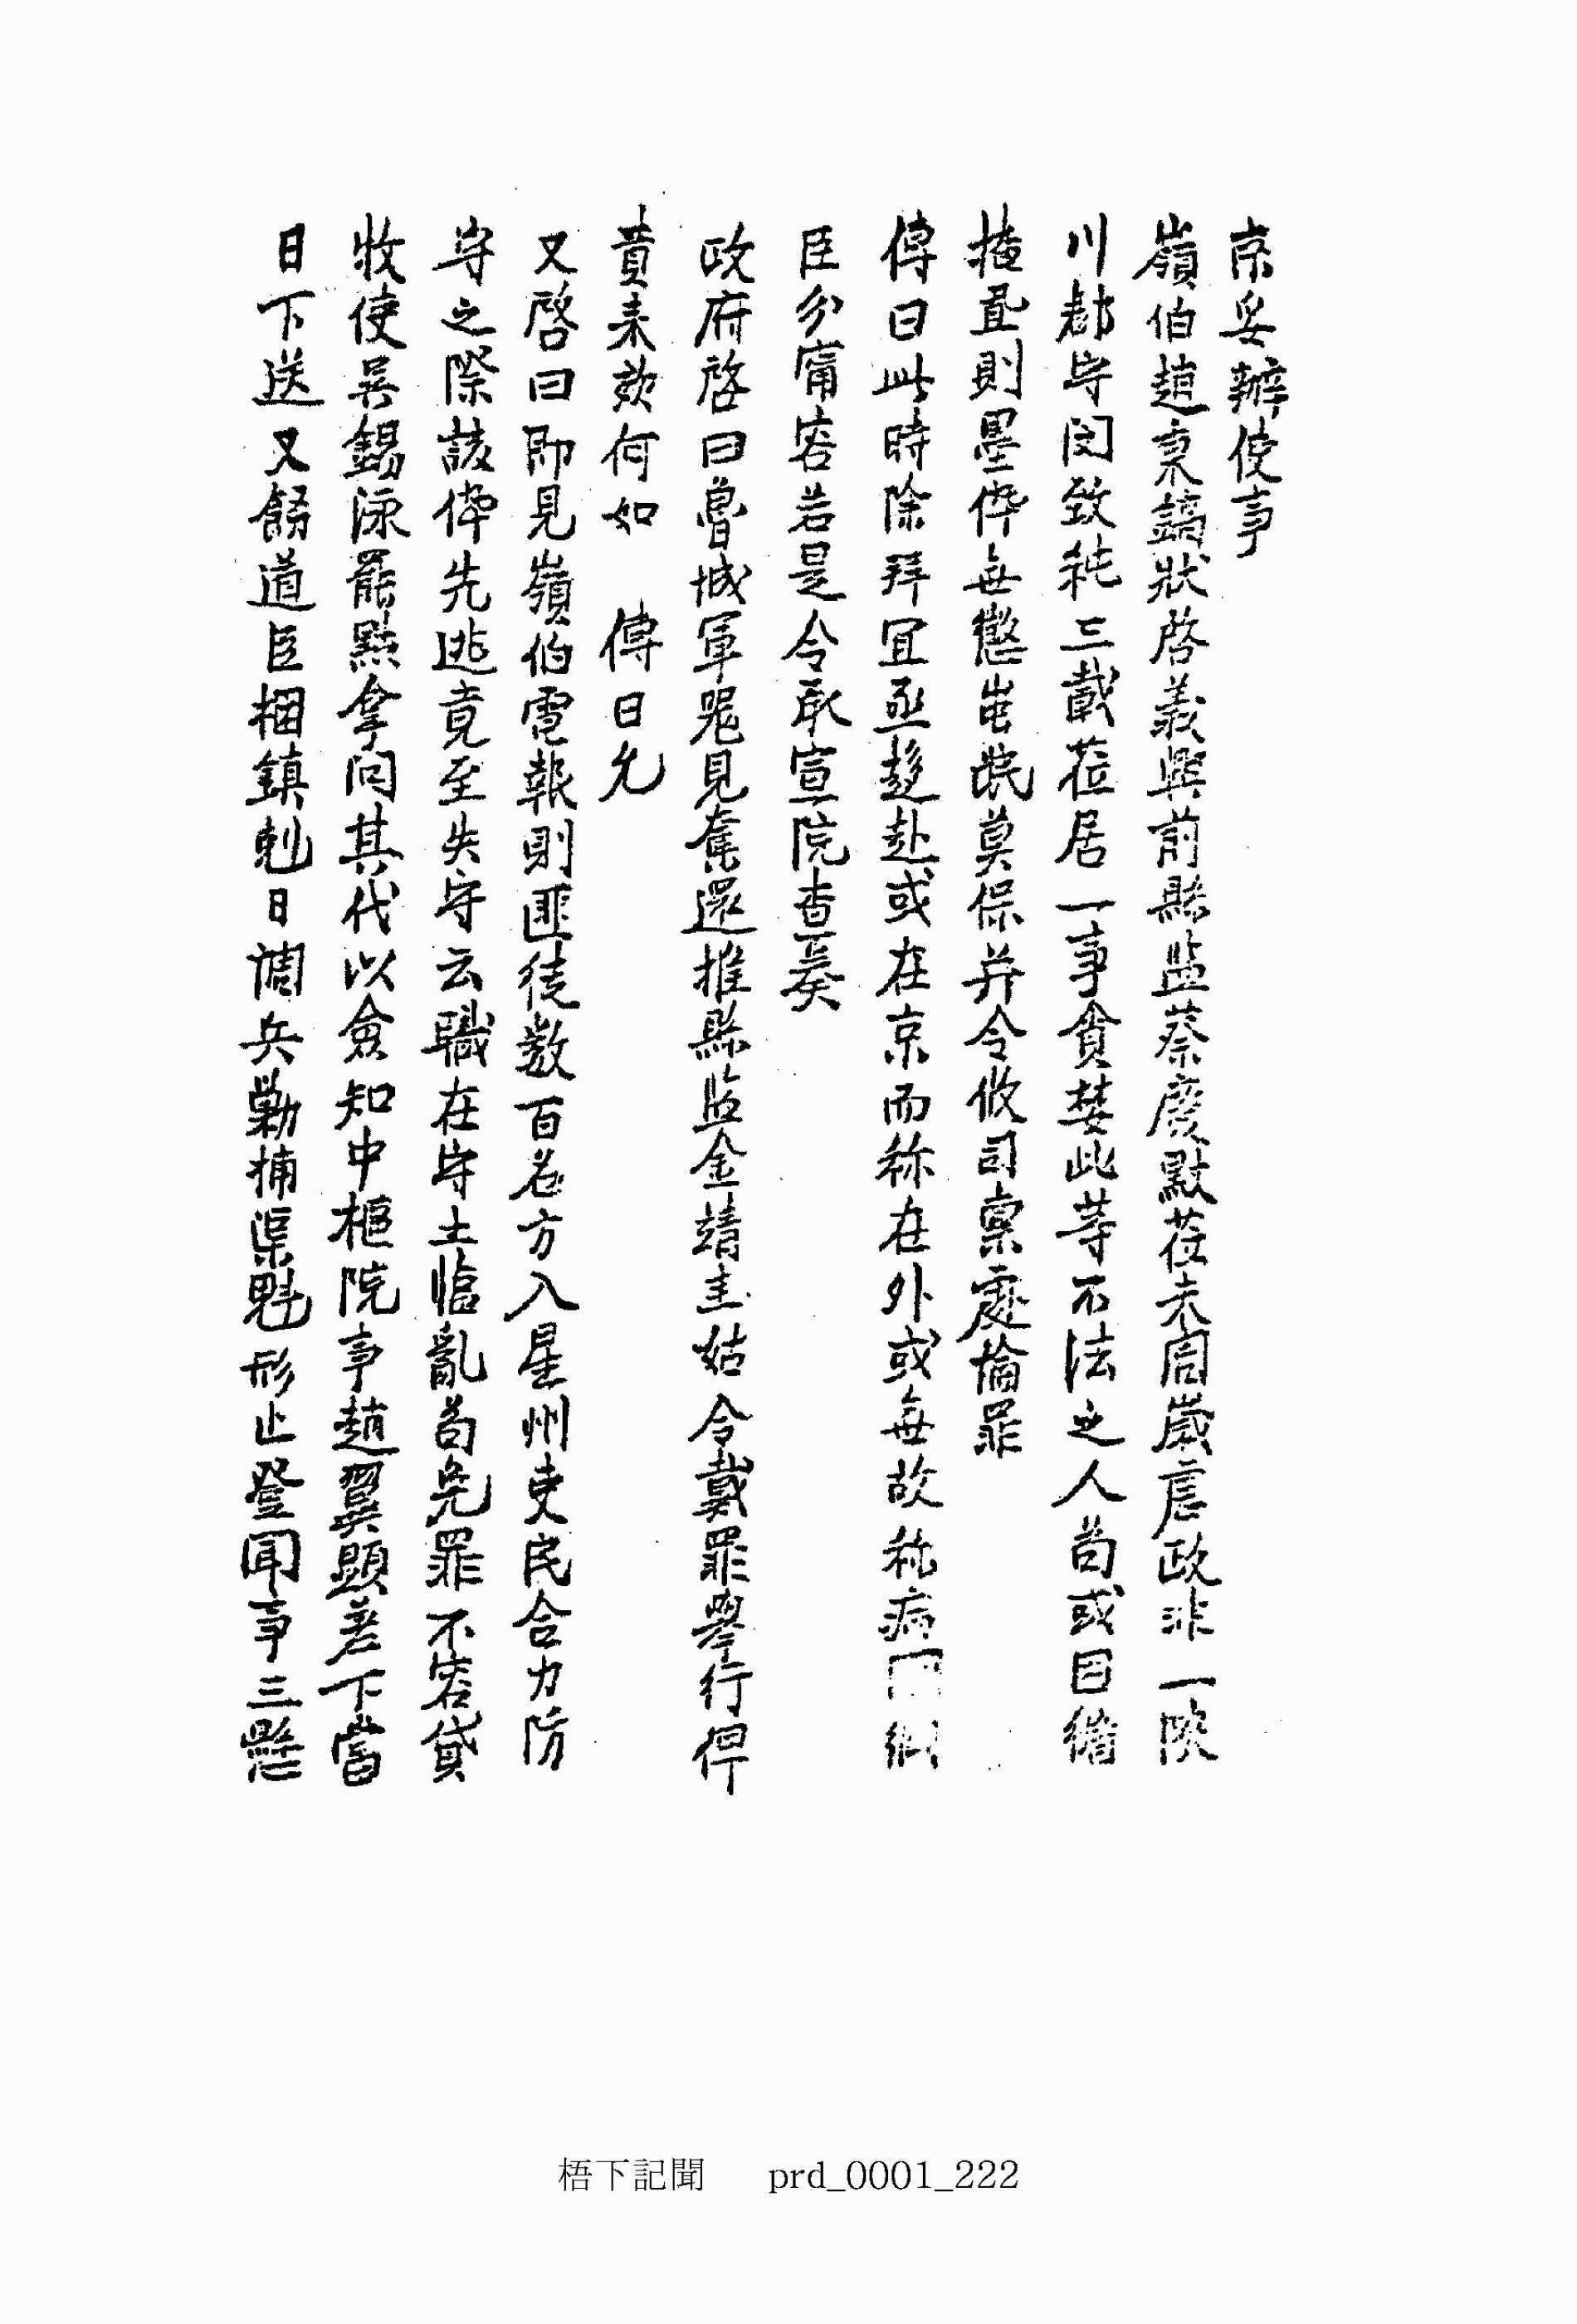 京妥辦使事
嶺伯趙秉鎬狀啓義興前縣監蔡慶默莅未周歲虐政非一陜
川郡守閔致純三載莅居一事貪婪此等不法之人苟或因循
掩置則墨倅無懲出民莫保并令攸司稟處愉罪
傳曰此時除拜宜亟趍赴或在京而称在外或無故称病
臣分寗容若是令承宣院查奏
政府啓曰魯城軍器見奪還推縣監金靖圭姑令戴罪擧行俾
責来效何如 傳曰允
又啓曰即見嶺伯電報則匪徒数百名方入星州吏民合力防
守之際該倅先逃竟至失守云職在守土臨亂苟免罪不容貸
牧使吳錫泳罷黜拿问其代以僉知中樞院事趙翼顯差下當
日下送又飭道臣梱鎮剋日調兵勦捕渠魁形止登聞事三懸
梧下記聞 prd_0001_222